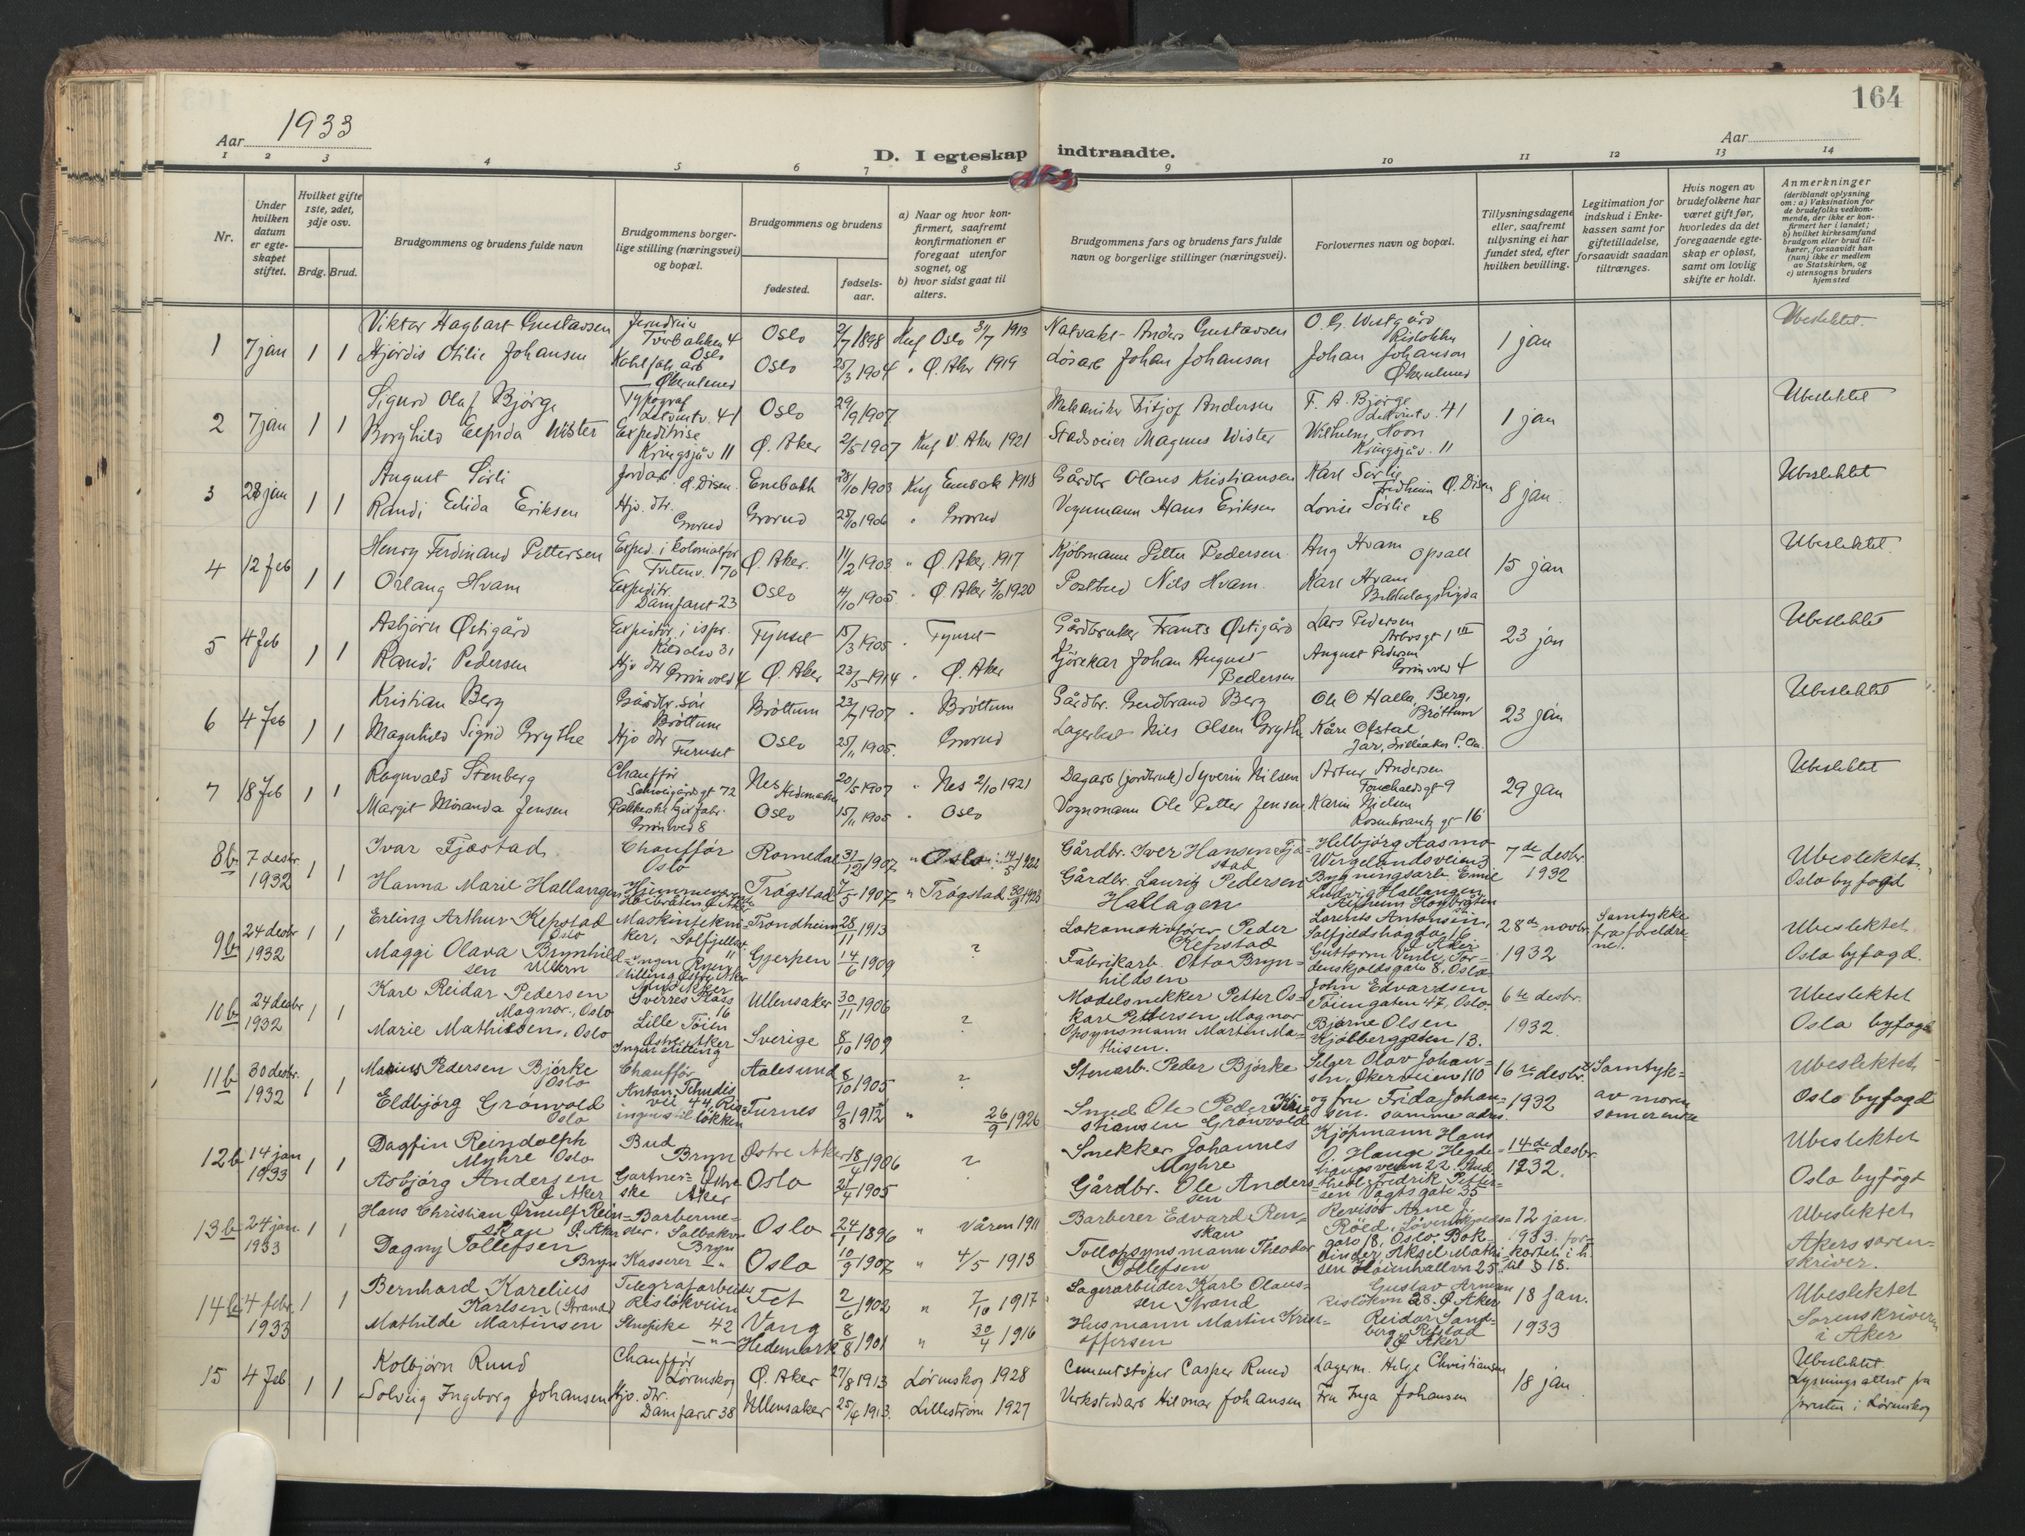 164
Aar 1933
Aar
D. I egteskap indtraadte.
1 2 3 4 5 6 7 8 9 10 11 12 13 14
Nr.
Under hvilken datum er egteskapet stiftet.
Hvilket gifte 1ste, 2det, 3dje osv.
Brdg. Brud.
Brudgommens og brudens fulde navn
Brudgommens borgerlige stilling (næringsvei) og bopæl.
Brudgommens og brudens
fødested.
fødselsaar.
a) Naar og hvor konfirmert, saafremt konfirmationen er foregaat utenfor sognet, og
b) hvor sidst gaat til alters.
Brudgommens fars og brudens fars fulde navn og borgerlige stillinger (næringsvei).
Forlovernes navn og bopæl.
Tillysningsdagene eller, saafremt tillysning ei har fundet sted, efter hvilken bevilling.
Legitimation for indskud i Enkekassen samt for giftetilladelse, forsaavidt saadan tiltrænges.
Hvis nogen av brudefolkene har været gift før, hvorledes da det foregaaende egteskap er opløst, samt om lovlig skifte er holdt.
Anmerkninger
(deriblandt oplysning om: a) Vaksination for de brudefolks vedkommende, der ikke er konfirmert her i landet; b) hvilket kirkesamfund brudgom eller brud tilhører, forsaavidt han (hun) ikke er medlem av Statskirken, og c) utensogns bruders hjemsted
1 7 jan 1 1 Viktor Hagbart Gustavsen Oslo 2/7 1898 Kuf Oslo 1913 Natvakt Anders Gustavsen O. G. Westgård 1 jan Ubeslektet.
Hjørdis Otilie Johansen Oslo 25/3 1904 " Ø. Aker 1919 Løsarb Johan Johansen Johan Johanson Økernlund
2 7 jan 1 1 Sigurd Olaf Bjørge Typograf 41 Oslo 29/9 1907 Mekaniker Fitjof Andersen F. A. Bjørge 41 1 jan Ubeslektet
Borghild Elfrida Wister Expeditrise Kringsjåv 11 Ø. Aker 2/5 1907 Kuf V. Aker 1921 Magnus Wister Wilhelm Hoon Kringsjåv. 11
3 28 jan 1 1 August Sørli Ø Disen. Enebakk 28/10 1903 Kuf Enebak 1918 Gårdbr Olaus Kristiansen Karl Sørlie Fridheim Ø. Disen 8 jan. Ubeslektet
Randi Elida Eriksen Hjv. dtr. Grorud Grorud 25/10 1906 " Grorud Vognmann Hans Eriksen Lovise Sørlie
4 12 feb 1 1 Henry Ferdinand Pettersen Exped. i kolonialfor Tvetenv. 170 Ø. Aker. 11/2 1903 " Ø. Aker. 1917 Kjøbmann Petter Pedersen Aug Hvam Opsall 15 jan Ubeslektet.
Orlaug Hvam Expeditr. Damfaret 23 Oslo 4/10 1905 " Ø Aker 1920 Postbud Nils Hvam. Karl Hvam
5 4 feb 1 1 Asbjørn Østigård Tynset 15/3 1905 " Tynset Gårdbruker Frants Østigård Lars Pedersen 23 jan Ubeslektet
Randi Pedersen Hjv dtr Grønvold 4 Ø. Aker 23/5 1914 " Ø. Aker Kjørekar Johan August Pedersen August Pedersen Grønvold 4
6 4 Feb 1 1 Kristian Berg Gårdbr. søn Brøttum Brøttum 23/7 1907 " Brøttum Gårdbr. Gudbrand Berg Ole O Halla Berg, Brøttum 23 jan Ubeslektet
Magnhild Sigrid Grythe Hjv dtr Furuset Oslo 25/11 1905. " Grorud Nils Olsen Grythe Kåre Ofstad
7 18 Feb 1 1 Ragnvald Stenberg Chauffør 72 Nes Hedemarken 20/5 1907 " Nes 2/10 1921 Dagarb (jordbruk) Syverin Nilsen Artur Andersen 29 jan Ubeslektet
Margit Miranda Jensen Grønvold 8 Oslo 15/11 1905 " Oslo Vognmann Ole Petter Jensen Karin Nielsen Rosenkrantz gt 16
8b 7 desbr 1932 1 1 Ivar Fjæstad Chauffør Oslo Romedal 31/12 1907 " Oslo 14/5 1922 Gårdbr. Iver Hansen Fjæstad Helbjørg Aasmo Wergelandsveien 3 7de desbr 1932 Ubeslektet. Oslo byfogd
Hanna Marie Hallangen Trøgstad 7/5 1907 " Trøgstad 30/9 1923 Gårdbr. Lauritz Pedersen Hallagen Bygningsarb. Emil Ludvig Hallangen
9b 24 desbr 1932 1 1 Erling Arthur Refstad Oslo Maskintekniker, Solfjellet 11 Trondheim 28/11 1913 ? Lokomotivfører Peder Refstad Lorents Antonsen, 16 28de novbr. 1932 Samtykke fra foreldrene. Ubeslektet Oslo byfogd.
Maggi Olava Brynhildsen Ullern Ingen stilling Gjerpen 14/6 1909 Fabrikarb. Otto Brynhildsen Guttorm Vinli, Tordenskjoldsgate 8, Oslo
10b 24 desbr 1932 1 1 Karl Reidar Pedersen Magnor, Oslo Sverres Plass 16 Ullensaker 30/11 1906 ? Modelsnekker Petter Oskar Pettersen Magnor John Edvardsen Tøiengaten 47, Oslo. 6te desbr. 1932. Ubeslektet Oslo byfogd
Marie Mathisen, Oslo Lille Tøien Østre Aker Ingen stilling Sverige 8/10 1909 Opsynsmann Martin Mathisen. Bjarne Olsen Kjølberggaten 13.
11b 30 desbr. 1932 1 1 Marius Pedersen Bjørke Oslo Chauffør Aalesund 8/10 1905 ? Stenarb. Peder Bjørke Selger Olav Johansen, Økernveien 110 16de desbr 1932 Samtykke av moren som er enke Ubeslektet Oslo byfogd
Eldbjørg Grønvold Oslo Furnes 9/8 1912 " 26/9 1926 Smed Ole Peder Kristiansen Grønvold og fru Frida Johansen. samme adrs.
12b 14 jan 1933 1 1 Dagfin Reindolph Myhre Oslo Bud Bryn Østre Aker 18/4 1906 ? Snekker Johannes Myhre Kjøpmann Hans O. Hauge Hegdehaugsveien 22. 14de desbr. 1232. Ubeslektet Oslo byfogd
Asbjørg Andersen Ø Aker Gartnerske Østre Aker Oslo 21/4 1905 Gårdbr. Ole Andersen Fredrik Pettersen Vogts gate 35
13b 24 jan. 1933 1 1 Hans Christian Ørnulf Reinskau Ø. Aker Barbermester. Bryn Oslo 24/1 1896 " Våren 1911 Barberer Edvard Renskau Revisor Arne J. Røed, 18, Oslo. 12 jan. 1933. forkortet i h. til § 18. Ubeslektet Akers sorenskriver.
Dagny Tollefsen Bryn Kasserer " Oslo 10/9 1907 " 4/5 1913 Tollopsynsmann Theodor Tollefsen Bokbinder Aksel Mathisen Høienhallvn 25.
14b 4 febr. 1933 1 1 Bernhard Karelius Karlsen (Strand) Telegrafarbeider Risløkveien 42 Fet 2/6 1902 " 7/10 1917 Lagerarbeider Karl Olaussen Strand Gustav Arnesen Risløkvn 28. Ø Aker 18 jan. 1933 Ubeslektet Sorenskriveren i Aker
Mathilde Martinsen Vang Hedemark 8/8 1901 " 30/4 1916 Husmann Martin Kristoffersen Reidar Sandberg Refstad Ø Aker
15 4 Feb 1 1 Kolbjørn Ruud Chauffør Lørenskog Ø. Aker 27/8 1913 Lørenskog 1928 Cementstøper Casper Ruud Lagerm. Helge Christiansen 18 jan. Ubeslektet. Lysningsattest fra presten i Lørenskog
Solveig Ingeborg Johansen Hjv. dtr. Damfaret 38 Ullensaker 25/6 1913. Lillestrøm 1927 Verkstedarb Hilmar Johansen Fru Inga Johansen